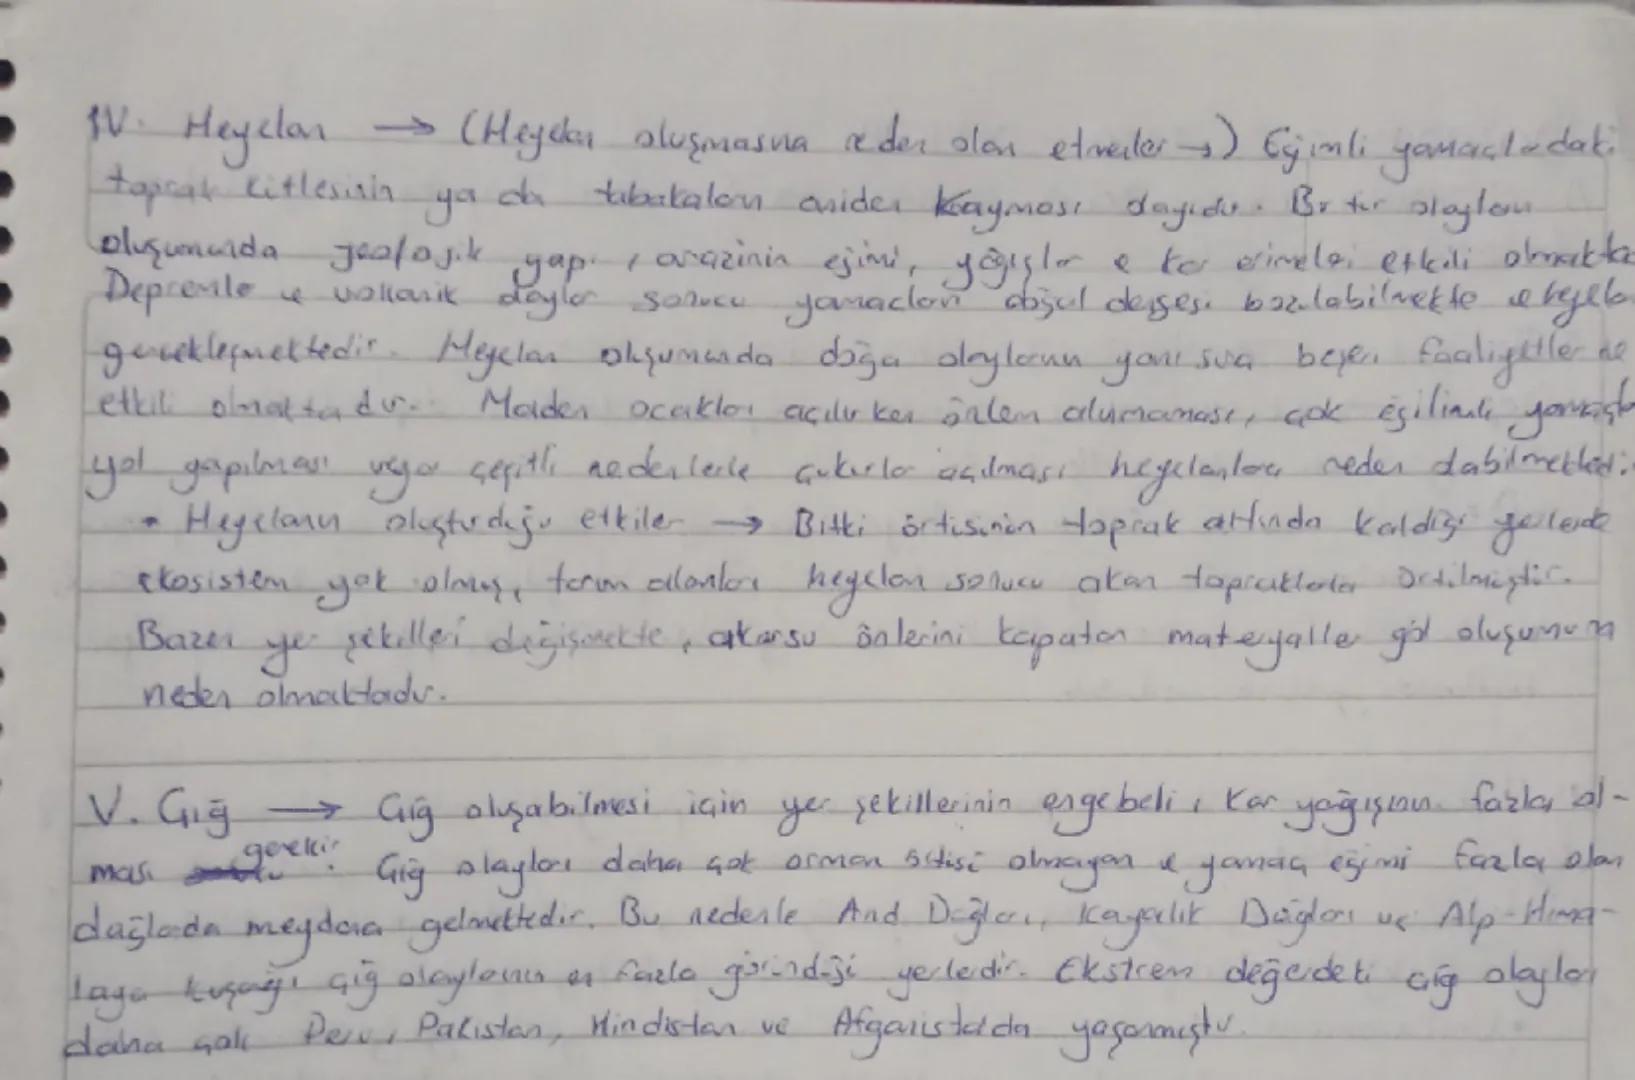 IV. Heyelan → (Heyelan oluşmasına neden olan etmenler →) Eğimli yamaçlardaki
toprak kitlesinin ya da tabakaların aniden kayması olayıdır. Bu tür olayların
oluşumunda jeolojik yapı, arazinin eğimi, yağışlar ve kar erimeleri etkili olmakta
Depremler ve volkanik olaylar sonucu yamaçların doğal dengesi bozulabilmekte ve heyelan
gerçekleşmektedir. Heyelan oluşumunda doğa olaylarının yanı sıra beşeri faaliyetler de
etkili olmaktadır. Maden ocakları açılırken önlem alınmaması, çok eğilimli yamaçlara
yol yapılması veya çeşitli nedenlerle çukurlar açılması heyelanlara neden olabilmektedir.
• Heyelanın oluşturduğu etkiler → Bitki örtüsünün toprak altında kaldığı yerlerde
ekosistem yok olmuş, tarım alanları heyelan sonucu akan topraklarla örtülmüştür.
Bazen yer şekilleri değişmekte, akarsu önlerini kapatan materyaller göl oluşumuna
neden olmaktadır.
V. Çığ → Çığ oluşabilmesi için yer şekillerinin engebeli, kar yağışının fazla ol-
ması gerekir. Çığ olayları daha çok orman örtüsü olmayan ve yamaç eğimi fazla olan
dağlarda meydana gelmektedir. Bu nedenle And Dağları, Kayalık Dağları ve Alp-Hima-
laya kuşağı çığ olaylarının en fazla göründüğü yerlerdir. Ekstrem değerdeki çığ olayları
daha çok Peru, Pakistan, Hindistan ve Afganistan'da yaşanmıştır.